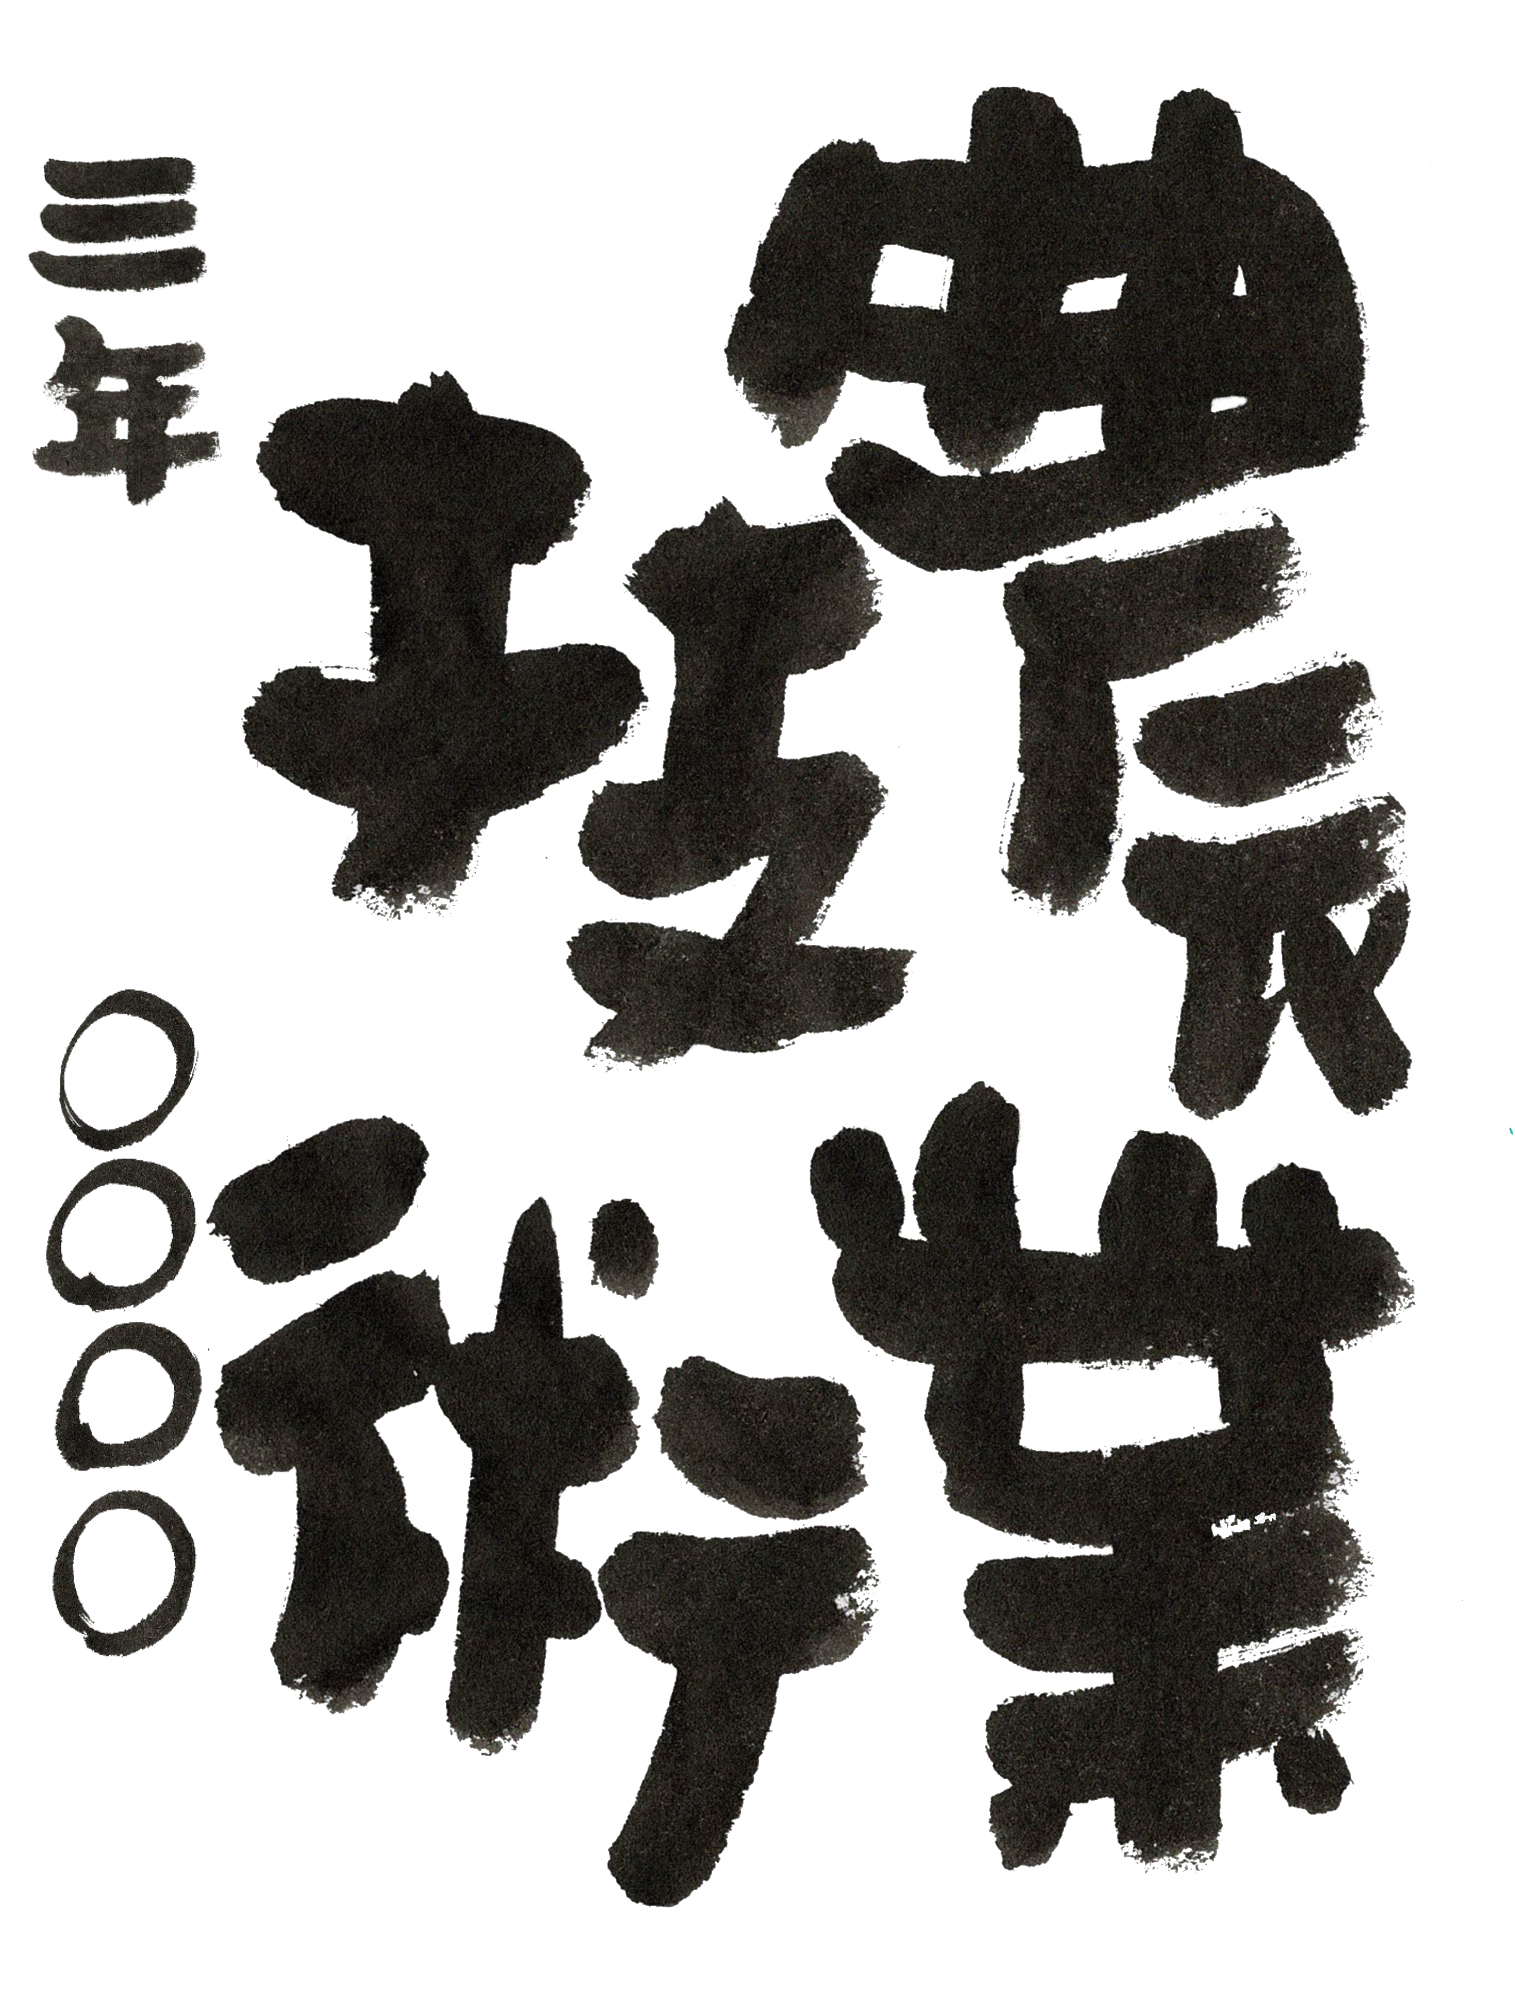 農業
技術
三年 〇〇〇〇